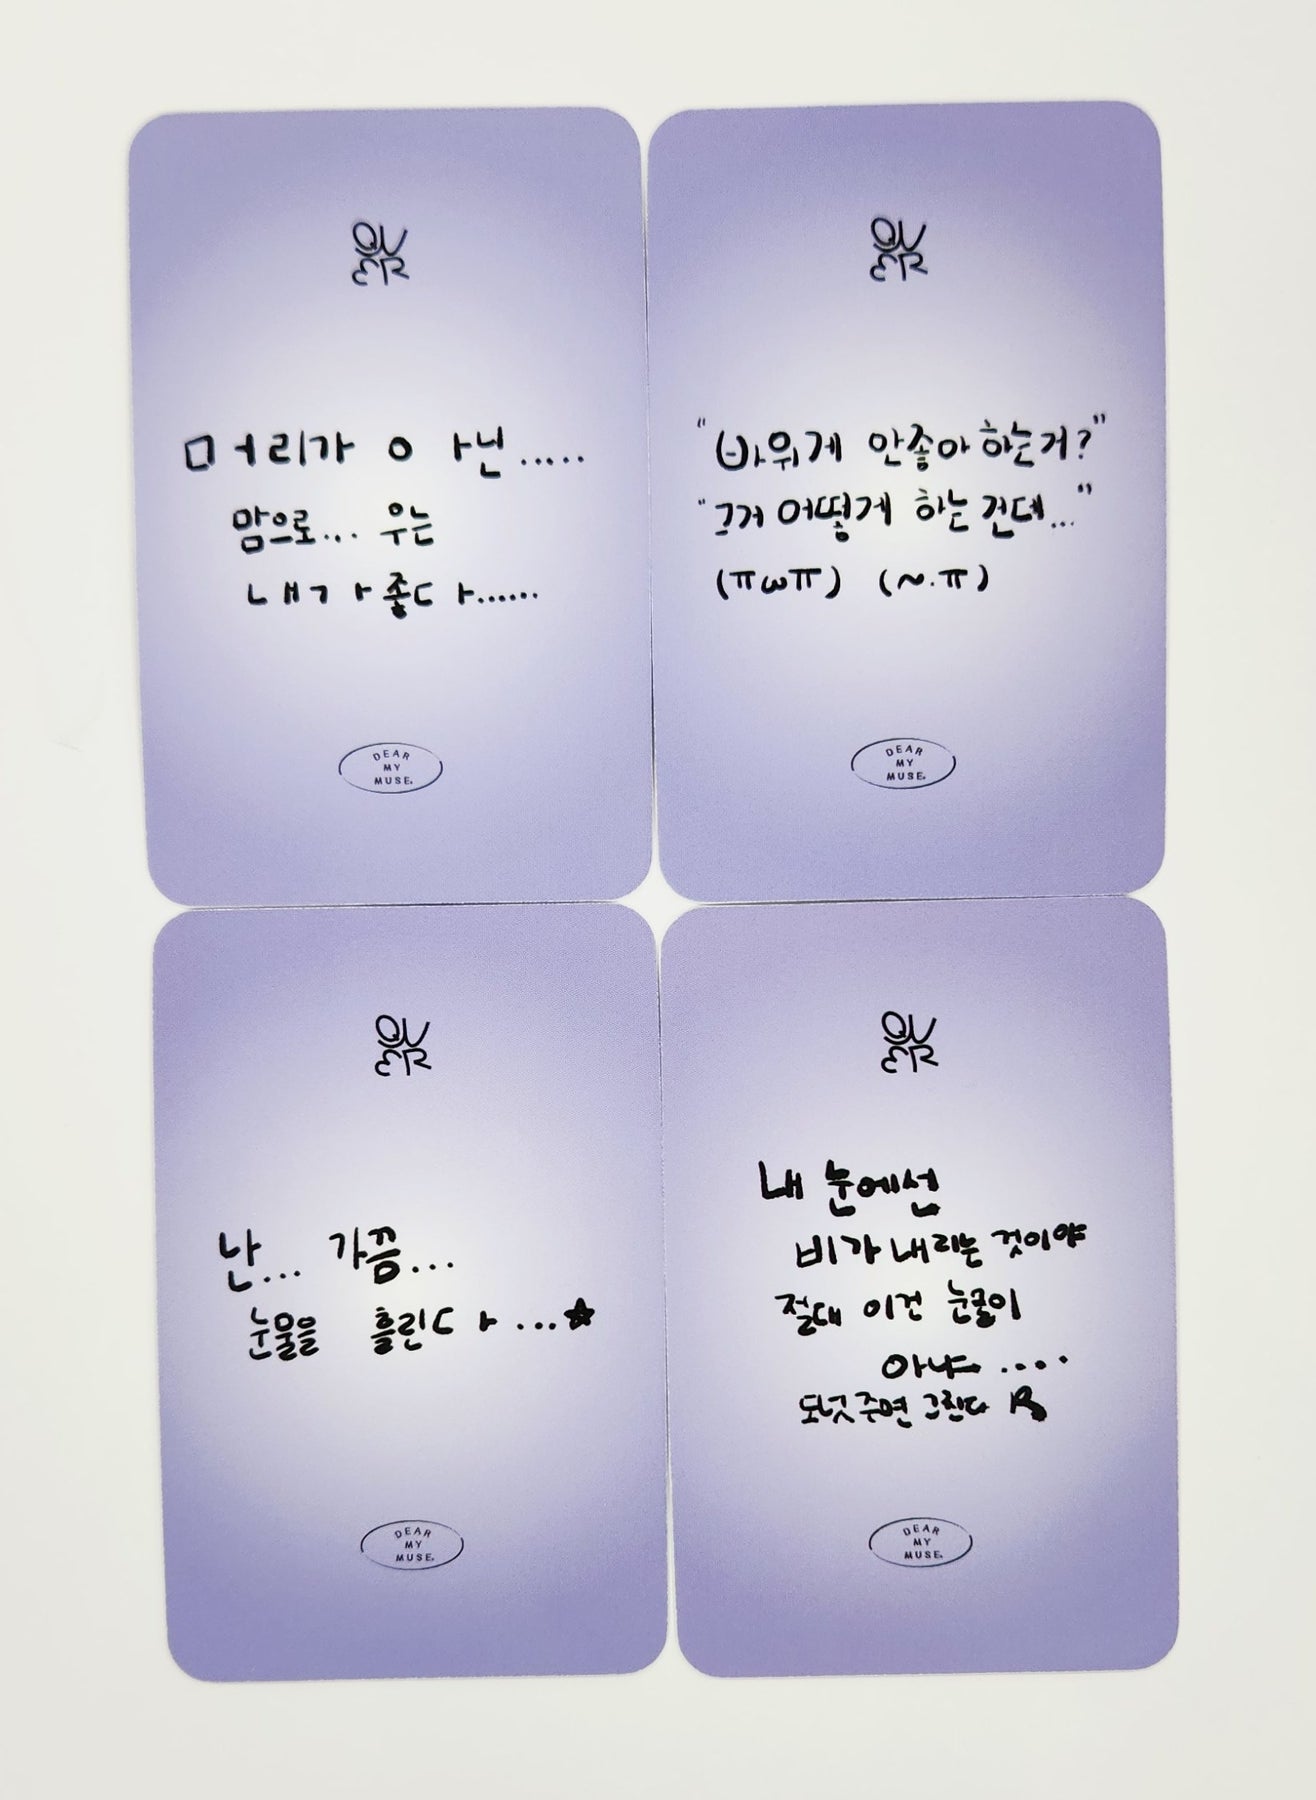 OVER
머리가 ㅇㅏ닌.....
맘으로... 우는
ㄴㅐㄱㅏ좋ㄷㅏ......
DEAR
MY
MUSE.
OVER
"바위게 안좋아하는거?"
"그거 어떻게 하는건데..."
(ㅠωㅠ) (~.ㅠ)
DEAR
MY
MUSE.
OVER
난... 가끔...
눈물을 흘린ㄷㅏ...★
DEAR
MY
MUSE.
OVER
내 눈에선
비가 내리는 것이야
절대 이건 눈물이
아냐....
도넛주면 그친다
DEAR
MY
MUSE.